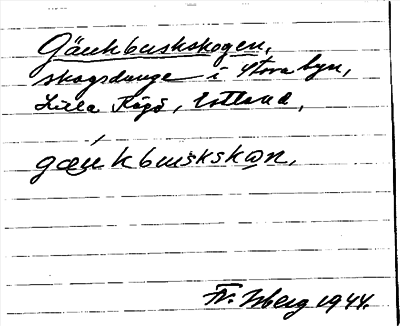 Gänkbuskskogen,
skogsdunge i Stora byn,
Lilla Rågö, Estland,
gæṷkbuskskωn,
Fr. Isberg 1944.